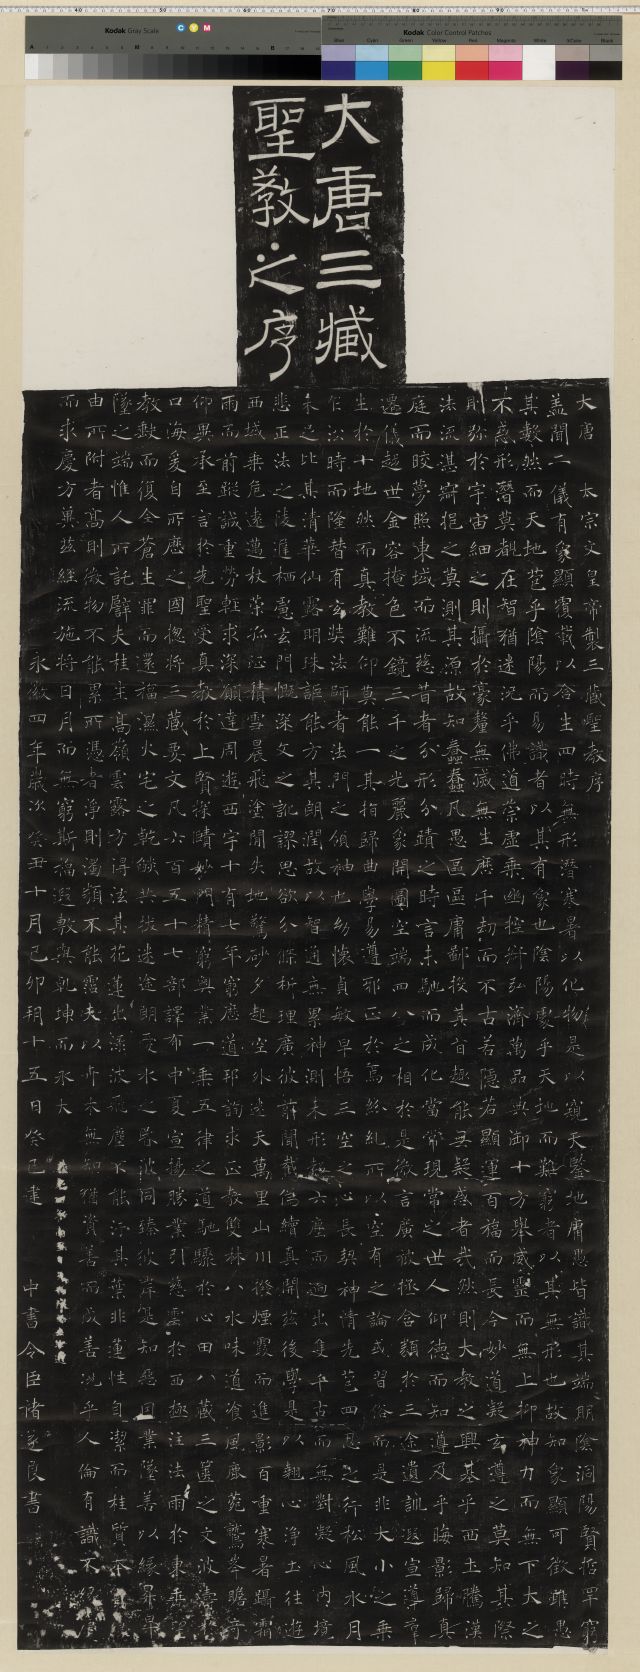 大唐三藏
聖教之序
大唐 太宗文皇帝製三藏聖教序
蓋聞二儀有象顯覆載以含生四時無形潛寒暑以化物是以窺天鑒地庸愚皆識其端明陰洞陽賢哲罕窮
其數然而天地苞乎陰陽而易識者以其有象也陰陽處乎天地而難窮者以其無形也故知象顯可徵雖愚
不惑形潛莫覩在智猶迷況乎佛道崇虛乘幽控寂弘濟萬品典御十方舉威靈而無上抑神力而無下大之
則弥於宇宙細之則攝於豪釐無滅無生歷千劫而不古若隱若顯運百福而長今妙道凝玄遵之莫知其際
法流湛寂挹之莫測其源故知蠢蠢凡愚區區庸鄙投其旨趣能無疑惑者哉然則大教之興基乎西土騰漢
庭而皎夢照東域而流慈昔者分形分蹟之時言未馳而成化當常現常之世人仰德而知遵及乎晦影歸真
遷儀越世金容掩色不鏡三千之光麗象開圖空端四八之相於是微言廣被拯含類於三途遺訓遐宣導群
生於十地然而真教難仰莫能一其指歸曲學易遵邪正於焉紛糺所以空有之論或習俗而是非大小之乘
乍沿時而隆替有玄奘法師者法門之領袖也幼懷貞敏早悟三空之心長契神情先苞四忍之行松風水月
未足比其清華仙露明珠詎能方其朗潤故以智通無累神測未形超六塵而迥出隻千古而無對凝心內境
悲正法之陵遲栖慮玄門慨深文之訛謬思欲分條析理廣彼前聞截偽續真開茲後學是以翹心淨土往遊
西域乘危遠邁杖策孤征積雪晨飛塗間失地驚砂夕起空外迷天萬里山川撥煙霞而進影百重寒暑躡霜
雨而前蹤誠重勞輕求深願達周遊西宇十有七年窮歷道邦詢求正教雙林八水味道飡風鹿菀鷲峯瞻奇
仰異承至言於先聖受真教於上賢探賾妙門精窮奧業一乘五律之道馳驟於心田八藏三篋之文波濤於
口海爰自所歷之國惣將三藏要文凡六百五十七部譯布中夏宣揚勝業引慈雲於西極注法雨於東垂聖
教缺而復全蒼生罪而還福濕火宅之乾焰共拔迷途朗愛水之昏波同臻彼岸是知惡因業墜善以緣昇昇
墜之端惟人所託譬夫桂生高嶺雲露方得泫其花蓮出淥波飛塵不能污其葉非蓮性自潔而桂質本
由所附者高則微物不能累所憑者淨則濁類不能霑夫以卉木無知猶資善而成善況乎人倫有識不緣慶
而求慶方冀茲經流施將日月而無窮斯福遐敷與乾坤而永大
永徽四年歲次癸丑十月己卯朔十五日癸巳建 中書令臣褚遂良書
Kodak Gray Scale
C Y M
Kodak Color Control Patches
Blue Cyan Green Yellow Red Magenta White 3/Color Black